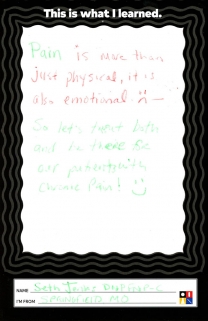 This is what I learned.
Pain is more than
just physical, it is
also emotional :( —
So let's treat both
and be there for
our patients with
Chronic Pain! :)
NAME Seth
I'M FROM Springfield, MO